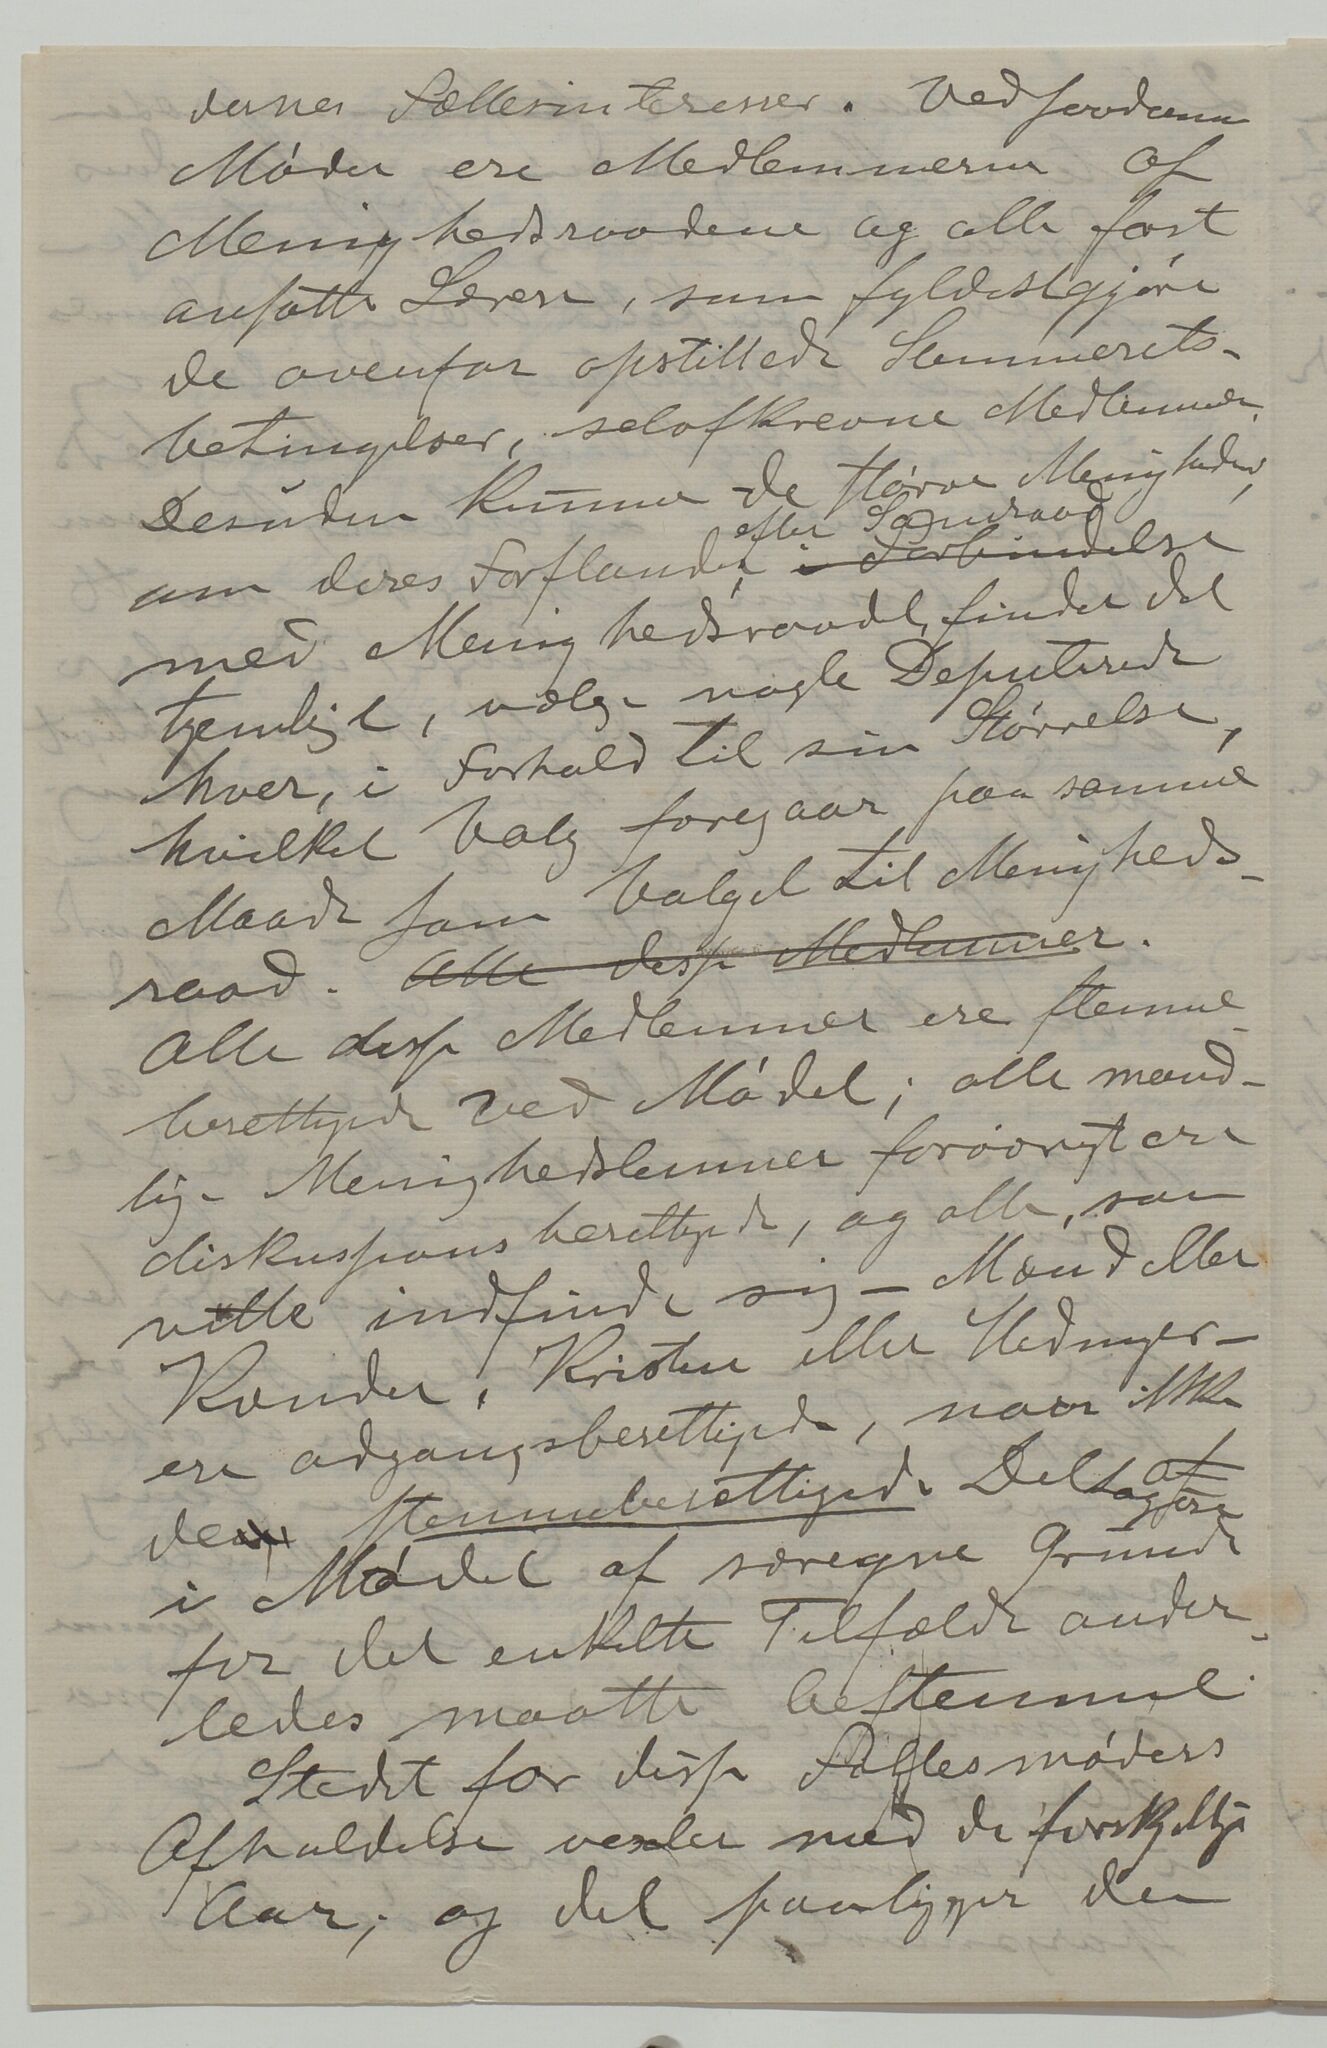 dernes Fællesinteresser. Ved saadanne
Møder ere Medlemmerne af
Menighedsraadene og alle fast
ansatte Lærere, som fyldestgjøre
de ovenfor opstillede Stemmerets-
betingelser, selvskrevne Medlemmer.
Desuden kunne de større Menigheder,
efter Samraad
om deres Forstander i Forbindelse
med Menighedsraadet finder det
tjenligt, vælge nogle Deputerede
hver, i Forhold til sin Størrelse,
hvilket Valg foregaar paa samme
Maade som Valget til Menigheds-
raad. Alle disse Medlemmer.
Alle disse Medlemmer ere stemme-
berettigede ved Mødet; alle mand-
lige Menighedslemmer forøvrigt ere
diskussionsberettigede, og alle, som
ville indfinde sig – Mænd eller
Kvinder, Kristne eller Hedninger –
ere adgangsberettigede, naar ikke
den stemmeberettigede Del af
i Mødet af særegne Grunde
for det enkelte Tilfælde ander-
ledes maatte bestemme.
Stedet for disse Fællesmøders
Afholdelse vexler med de forskjellige
Aar; og det paaligger den